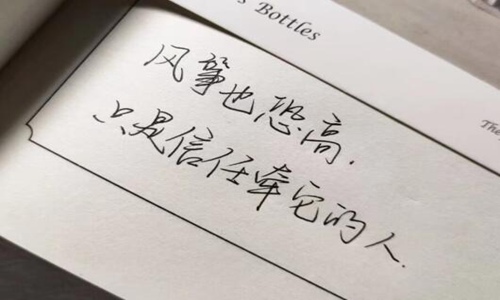 s Bottles
The
风筝也恐高.
只是信任牵它的人.